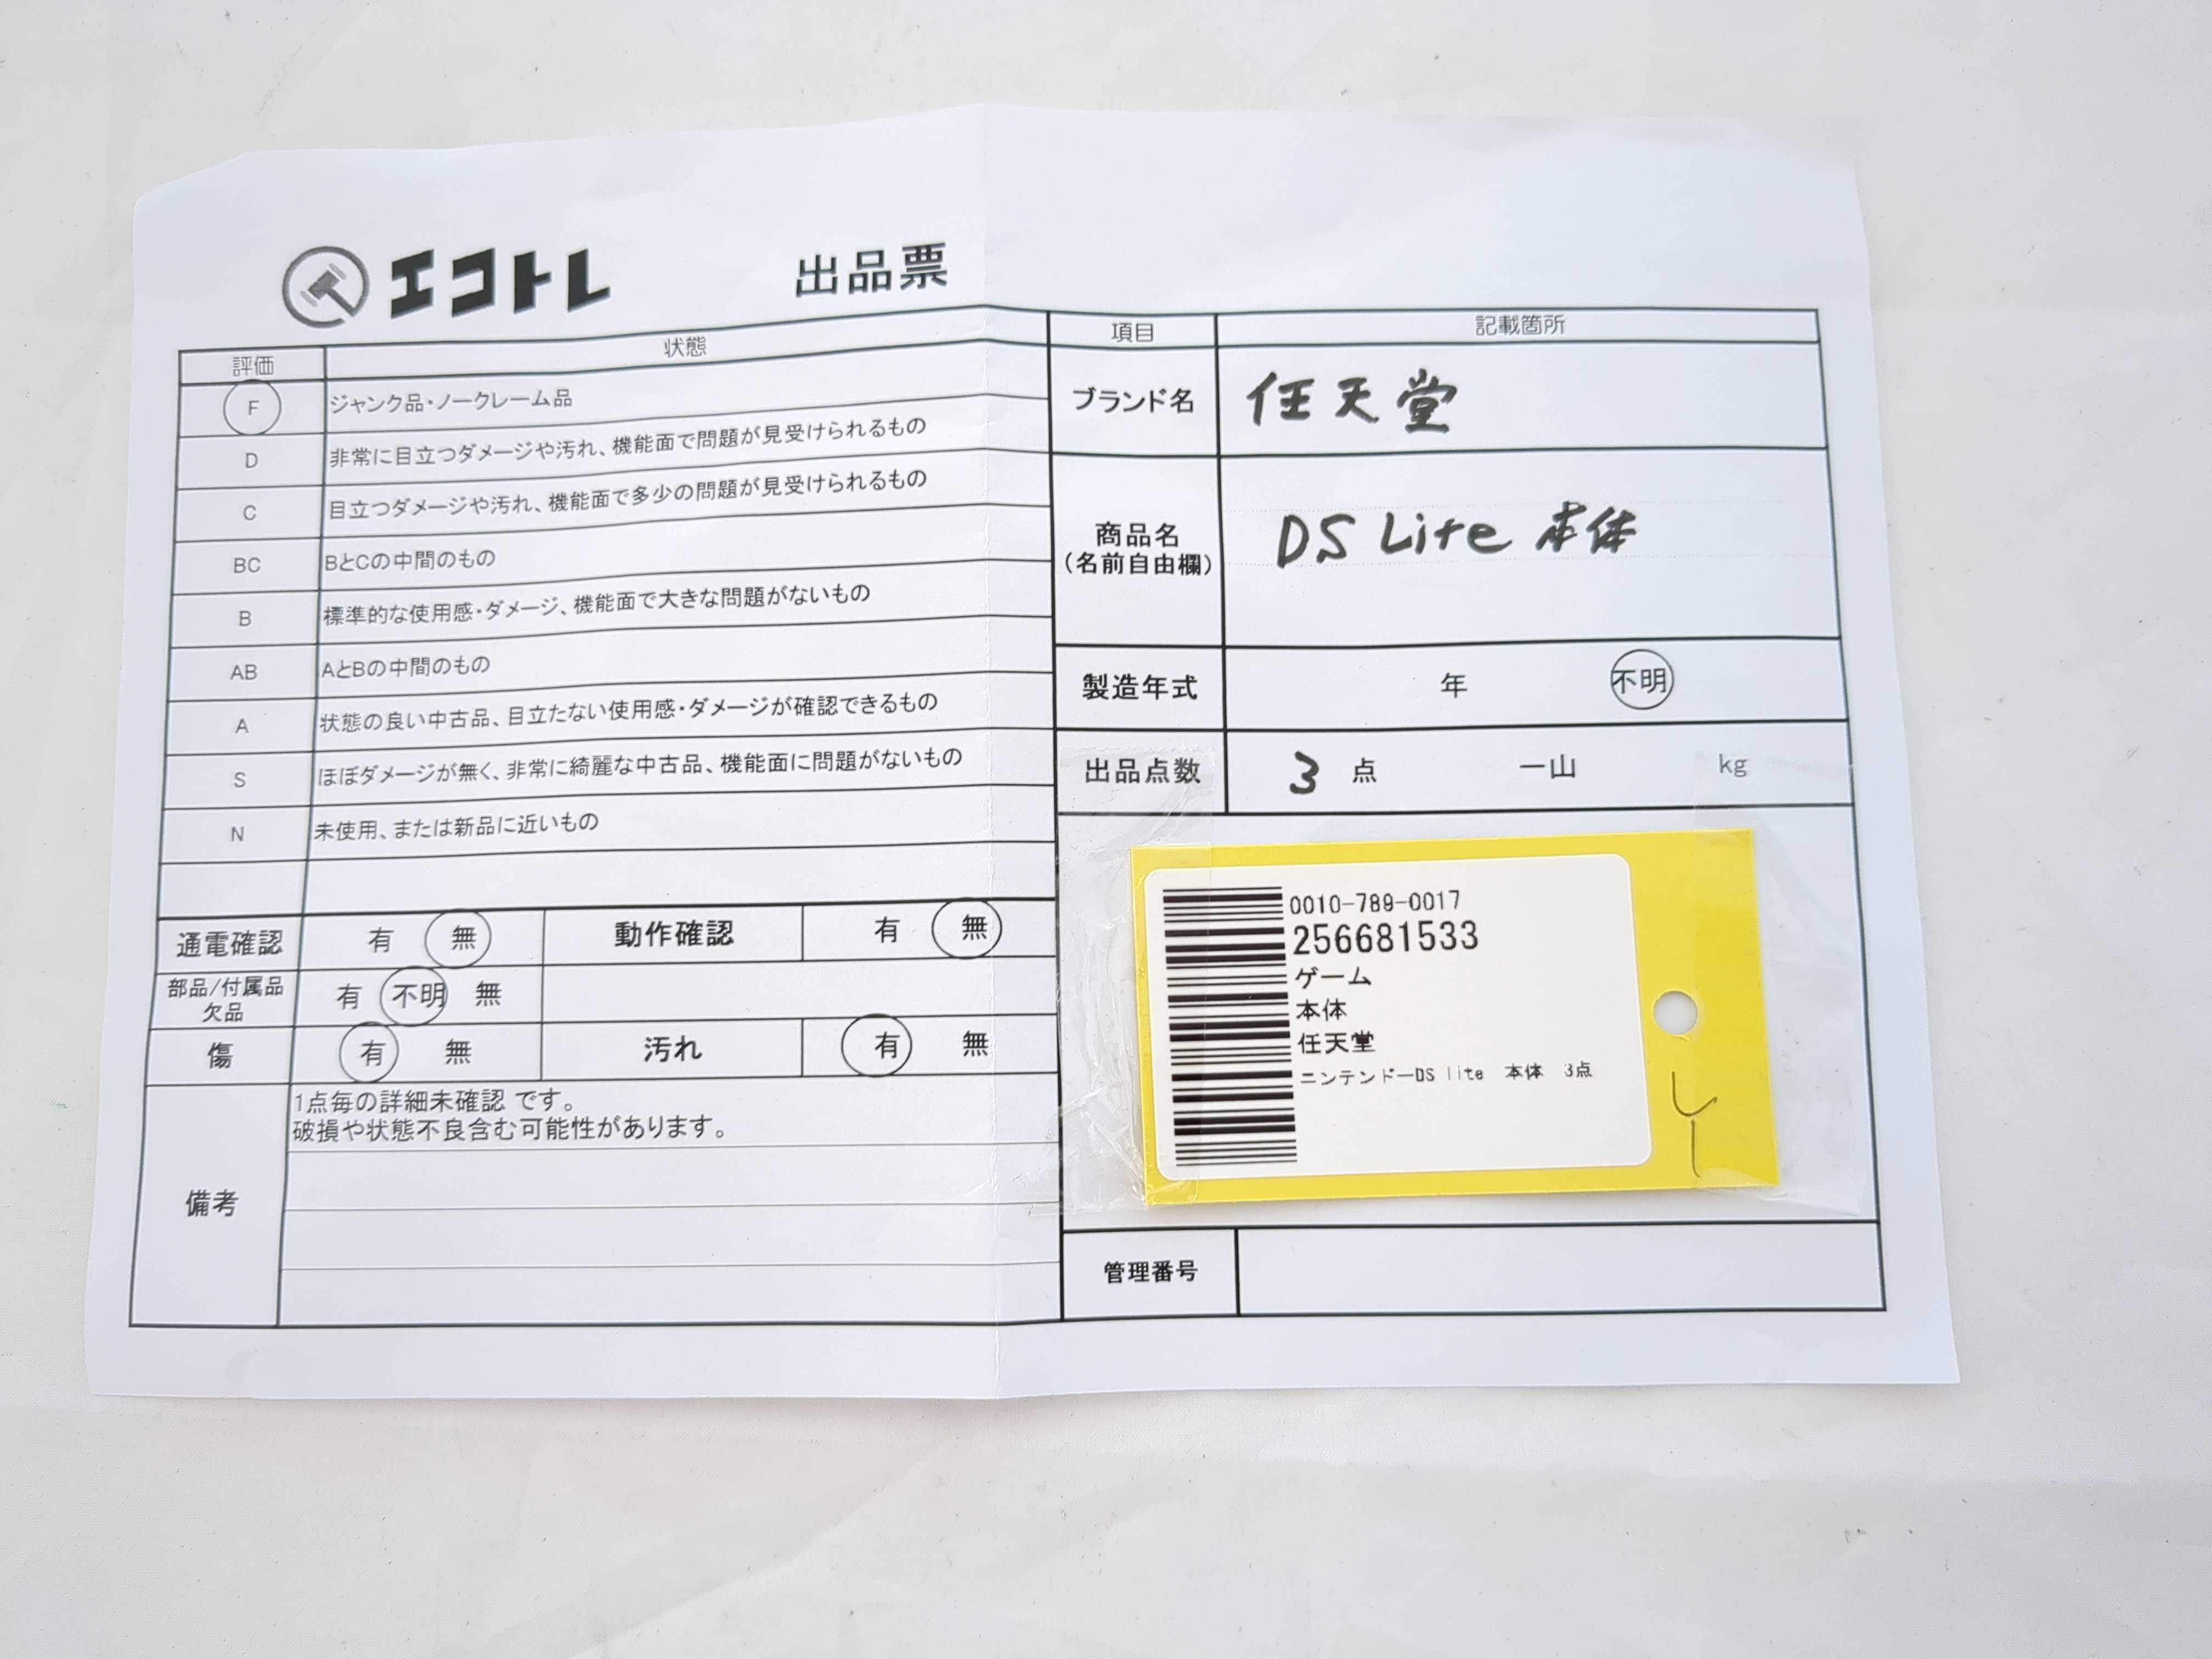 エコトレ 出品票
評価 状態
F ジャンク品・ノークレーム品
D 非常に目立つダメージや汚れ、機能面で問題が見受けられるもの
C 目立つダメージや汚れ、機能面で多少の問題が見受けられるもの
BC BとCの中間のもの
B 標準的な使用感・ダメージ、機能面で大きな問題がないもの
AB AとBの中間のもの
A 状態の良い中古品、目立たない使用感・ダメージが確認できるもの
S ほぼダメージが無く、非常に綺麗な中古品、機能面に問題がないもの
N 未使用、または新品に近いもの
通電確認 有 無 動作確認 有 無
部品/付属品
欠品 有 不明 無
傷 有 無 汚れ 有 無
備考
1点毎の詳細未確認 です。
破損や状態不良含む可能性があります。
項目 記載箇所
ブランド名 任天堂
商品名
(名前自由欄) DS Lite 本体
製造年式 年 不明
出品点数 3 点 一山 kg
0010-789-0017
256681533
ゲーム
本体
任天堂
ニンテンドーDS lite 本体 3点
管理番号